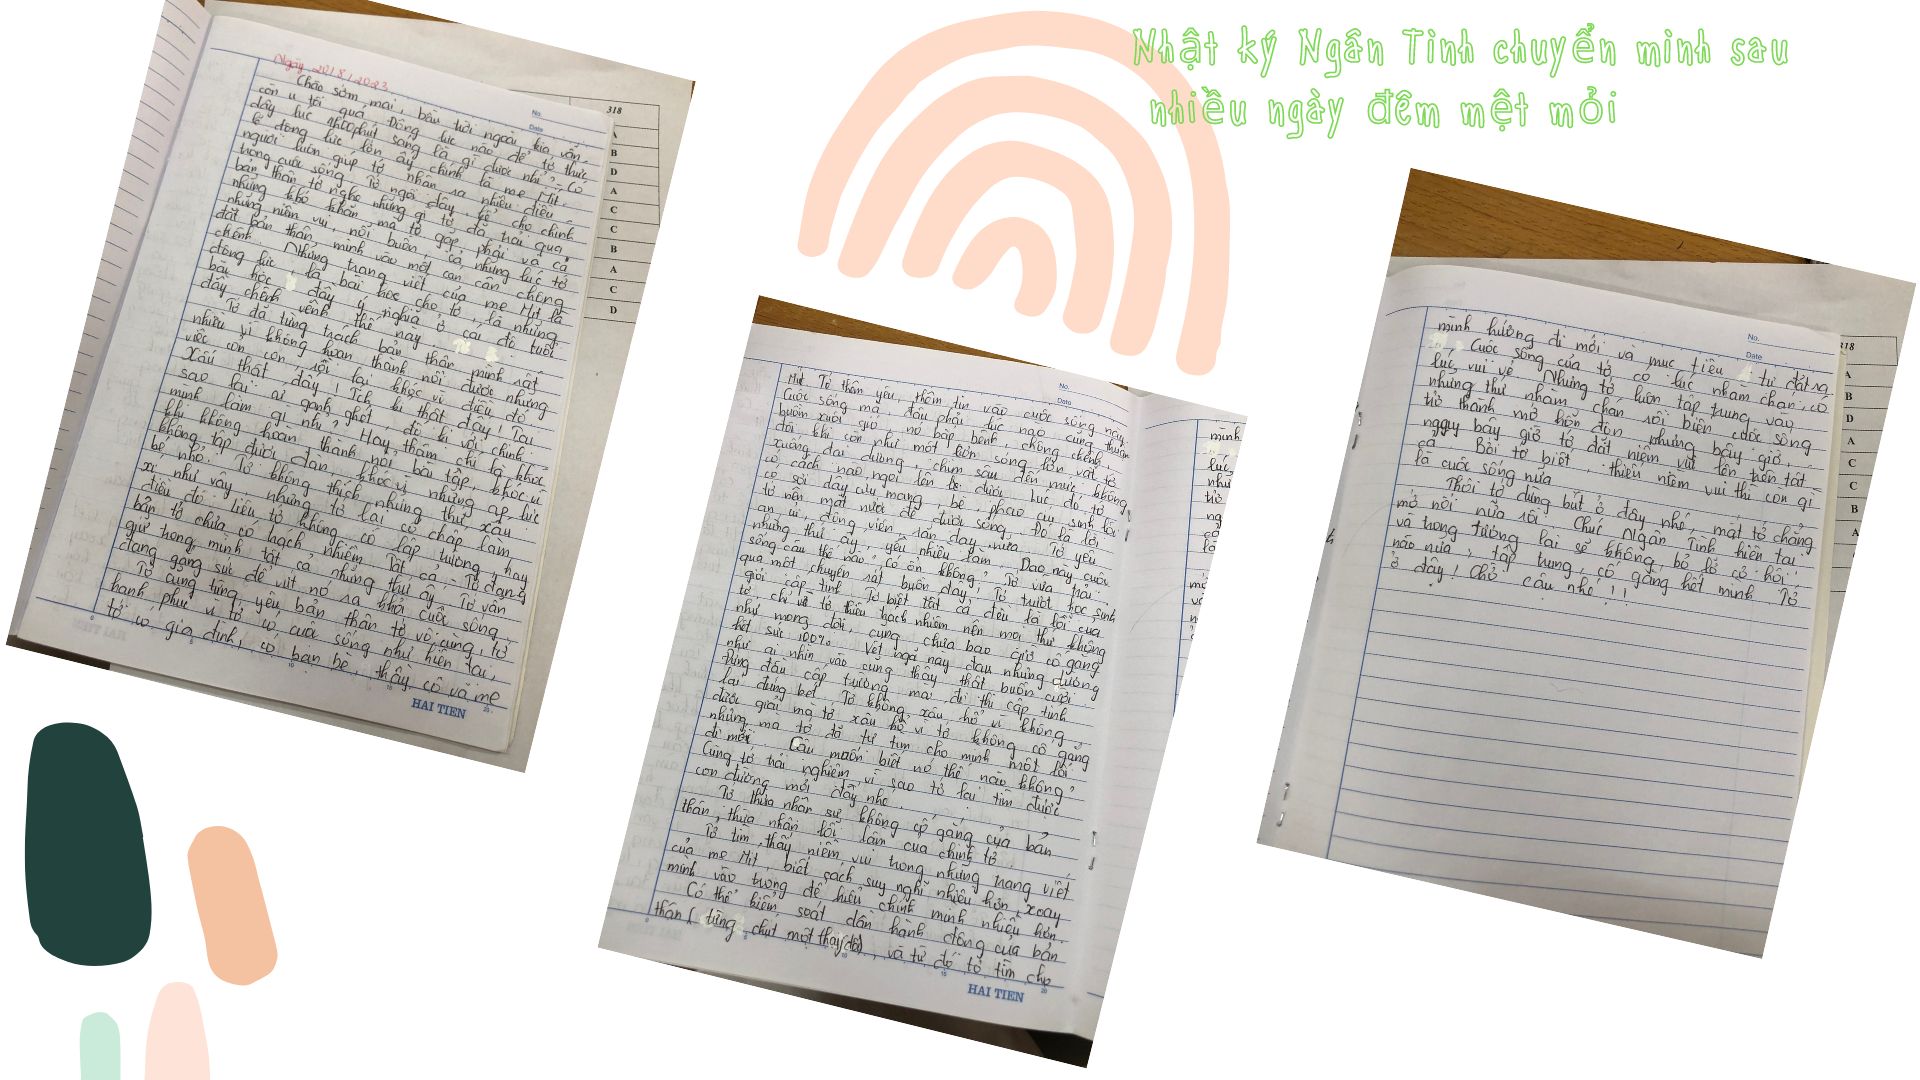 Nhật ký Ngân Tình chuyển mình sau
nhiều ngày đêm mệt mỏi
Ngày 20/8/2023
No.
Date
Chào sớm mai, bầu trời ngoài kia vẫn
còn u tối quá. Động lực nào để tớ thức
dậy lúc phút sáng là gì được nhỉ? Có
lẽ động lực lớn ấy chính là mẹ Mít
người luôn giúp tớ nhận ra nhiều điều
trong cuộc sống. Tớ ngồi đây, kể cho chính
bản thân tớ nghe những gì tớ đã trải qua
những khó khăn mà tớ gặp phải và cả
những niềm vui, nỗi buồn, cả những lúc tớ
đặt bản thân mình vào một cán cân chông
chênh. Những trang viết của mẹ Mít là
động lực, là bài học cho tớ, là những
bài học đầy ý nghĩa ở cái độ tuổi
đầy chênh vênh thế này.
Tớ đã từng trách bản thân mình rất
nhiều vì không hoàn thành nổi được những
việc cỏn con, rồi lại khóc vì điều đó
Xấu thật đấy! Ích kỉ thật đấy! Tại
sao lại ganh ghét, đố kị với chính
mình làm gì nhỉ? Hay thậm chí là khóc
khi không hoàn thành nổi bài tập, khóc vì
không tập được đàn, khóc vì những áp lực
bé nhỏ. Tớ không thích những thứ xấu
xí như vậy nhưng tớ lại cố chấp làm
điều đó. Liệu tớ không có lập trường hay
bản tớ chưa có trách nhiệm. Tất cả - Tớ đang
giữ trong mình tất cả những thứ ấy. Tớ vẫn
đang gắng sức để vứt nó ra khỏi cuộc sống.
Tớ cũng từng yêu bản thân tớ vô cùng, tớ
hạnh phúc vì tớ có cuộc sống như hiện tại,
tớ có gia đình, có bạn bè, thầy cô và mẹ
HAI TIEN
318
A
B
D
A
C
C
B
A
C
D
No.
Date
Mít. Tớ thầm yêu, thầm tin vào cuộc sống này
Cuộc sống mà, đâu phải lúc nào cũng thuận
buồm xuôi gió, nó bấp bênh, chông chênh,
đôi khi còn như một cơn sóng lớn vật tớ
xuống đại dương, chìm sâu đến mức không
có cách nào ngoi lên được. Lúc đó, tớ
có sợi dây cứu mạng, bè, phao cứu sinh lôi
tớ nên mặt nước để được sống. Đó là lời
an ủi, động viên, răn dạy nữa. Tớ yêu
những thứ ấy, yêu nhiều lắm. Dạo này cuộc
sống cậu thế nào, có ổn không? Tớ vừa trải
qua một chuyện rất buồn đấy! Tớ trượt học sinh
giỏi cấp tỉnh. Tớ biết tất cả đều là lỗi của
tớ, chỉ vì tớ thiếu trách nhiệm nên mọi thứ không
như mong đợi, cũng chưa bao giờ cố gắng
hết sức 100%. Vết ngã này đau nhưng dường
như ai nhìn vào cũng thấy thật buồn cười.
Đứng đầu cấp trường mà đi thi cấp tỉnh
lại đứng bét. Tớ không xấu hổ vì không
được giải mà tớ xấu hổ vì tớ không cố gắng
nhưng mà tớ đã tự tìm cho mình một lối
đi mới. Cậu muốn biết nó thế nào không?
Cùng tớ trải nghiệm vì sao tớ lại tìm được
con đường mới đấy nhé.
Tớ thừa nhận sự không cố gắng của bản
thân, thừa nhận lỗi lầm của chính tớ.
Tớ tìm thấy niềm vui trong những trang viết
của mẹ Mít, biết cách suy nghĩ nhiều hơn, xoay
mình vào trong để hiểu chính mình nhiều hơn.
Có thể kiểm soát dần hành động của bản
thân (từng chút một thay đổi), và từ đó tớ tìm cho
HAI TIEN
No.
Date
mình hướng đi mới và mục tiêu tự đặt ra
Cuộc sống của tớ có lúc nhàm chán, có
lúc vui vẻ. Nhưng tớ luôn tập trung vào
những thứ nhàm chán rồi biến cuộc sống
trở thành mớ hỗn độn, nhưng bây giờ,
ngay bây giờ tớ đặt niềm vui lên trên tất
cả. Bởi tớ biết, thiếu niềm vui thì còn gì
là cuộc sống nữa.
Thôi tớ dừng bút ở đây nhé, mắt tớ chẳng
mở nổi nữa rồi. Chúc Ngân Tình hiện tại
và trong tương lai sẽ không bỏ lỡ cơ hội
nào nữa, tập trung, cố gắng hết mình. Tớ
ở đây! Chờ cậu nhé!!
318
A
B
D
A
C
C
B
A